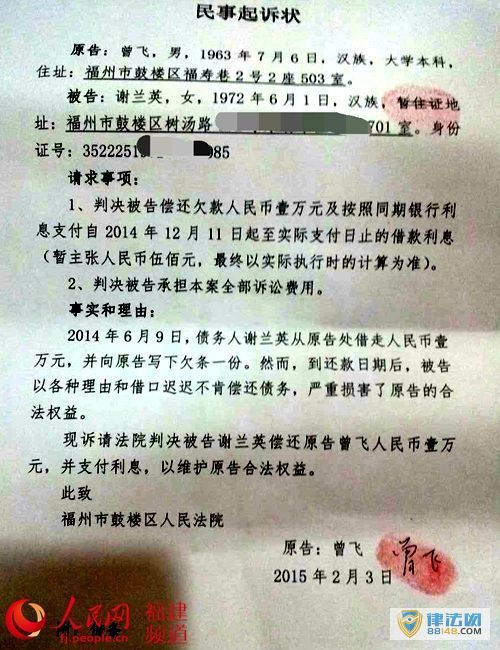 民事起诉状
原告：曾飞，男，1963年7月6日，汉族，大学本科，
住址：福州市鼓楼区福寿巷2号2座503室。
被告：谢兰英，女，1972年6月1日，汉族，暂住证地
址：福州市鼓楼区树汤路 701室。身份
证号：3522251 985
请求事项：
1、判决被告偿还欠款人民币壹万元及按照同期银行利
息支付自2014年12月11日起至实际支付日止的借款利息
（暂主张人民币伍佰元，最终以实际执行时的计算为准）。
2、判决被告承担本案全部诉讼费用。
事实和理由：
2014年6月9日，债务人谢兰英从原告处借走人民币壹
万元，并向原告写下欠条一份。然而，到还款日期后，被告
以各种理由和借口迟迟不肯偿还债务，严重损害了原告的合
法权益。
现诉请法院判决被告谢兰英偿还原告曾飞人民币壹万
元，并支付利息，以维护原告合法权益。
此致
福州市鼓楼区人民法院
原告：曾飞 曾飞
2015年2月3日
人民网 福建
fj.people.cn 频道
律法网
88148.com